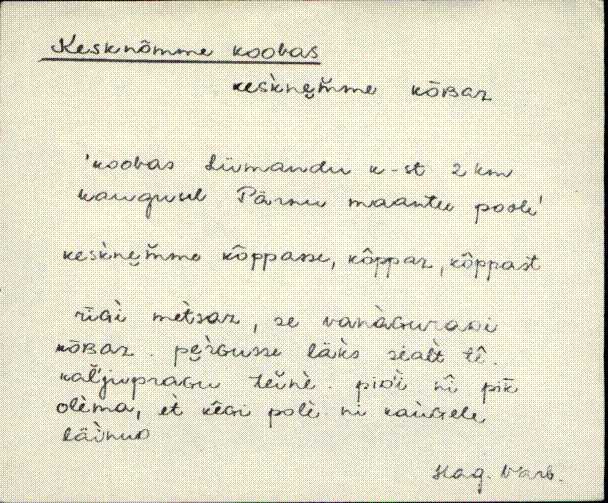 Kesknõmme koobas
keskne̮m̆me kōʙaz
'koobas Liivandu k-st 2 km
kaugusel Pärnu maantee pooli'
keskne̮m̆me kôppasse, kôppaz, kôppast
rīɢi mètsaz, se vanàɢurani
kōʙaz. pe̮rɢusse läks sealt tê.
kal̆jupragu teinè. piᴅi nî pik̄
olèma, èt kêɢi polè ni kaùɢele
läinuᴅ
Hag. Varb.